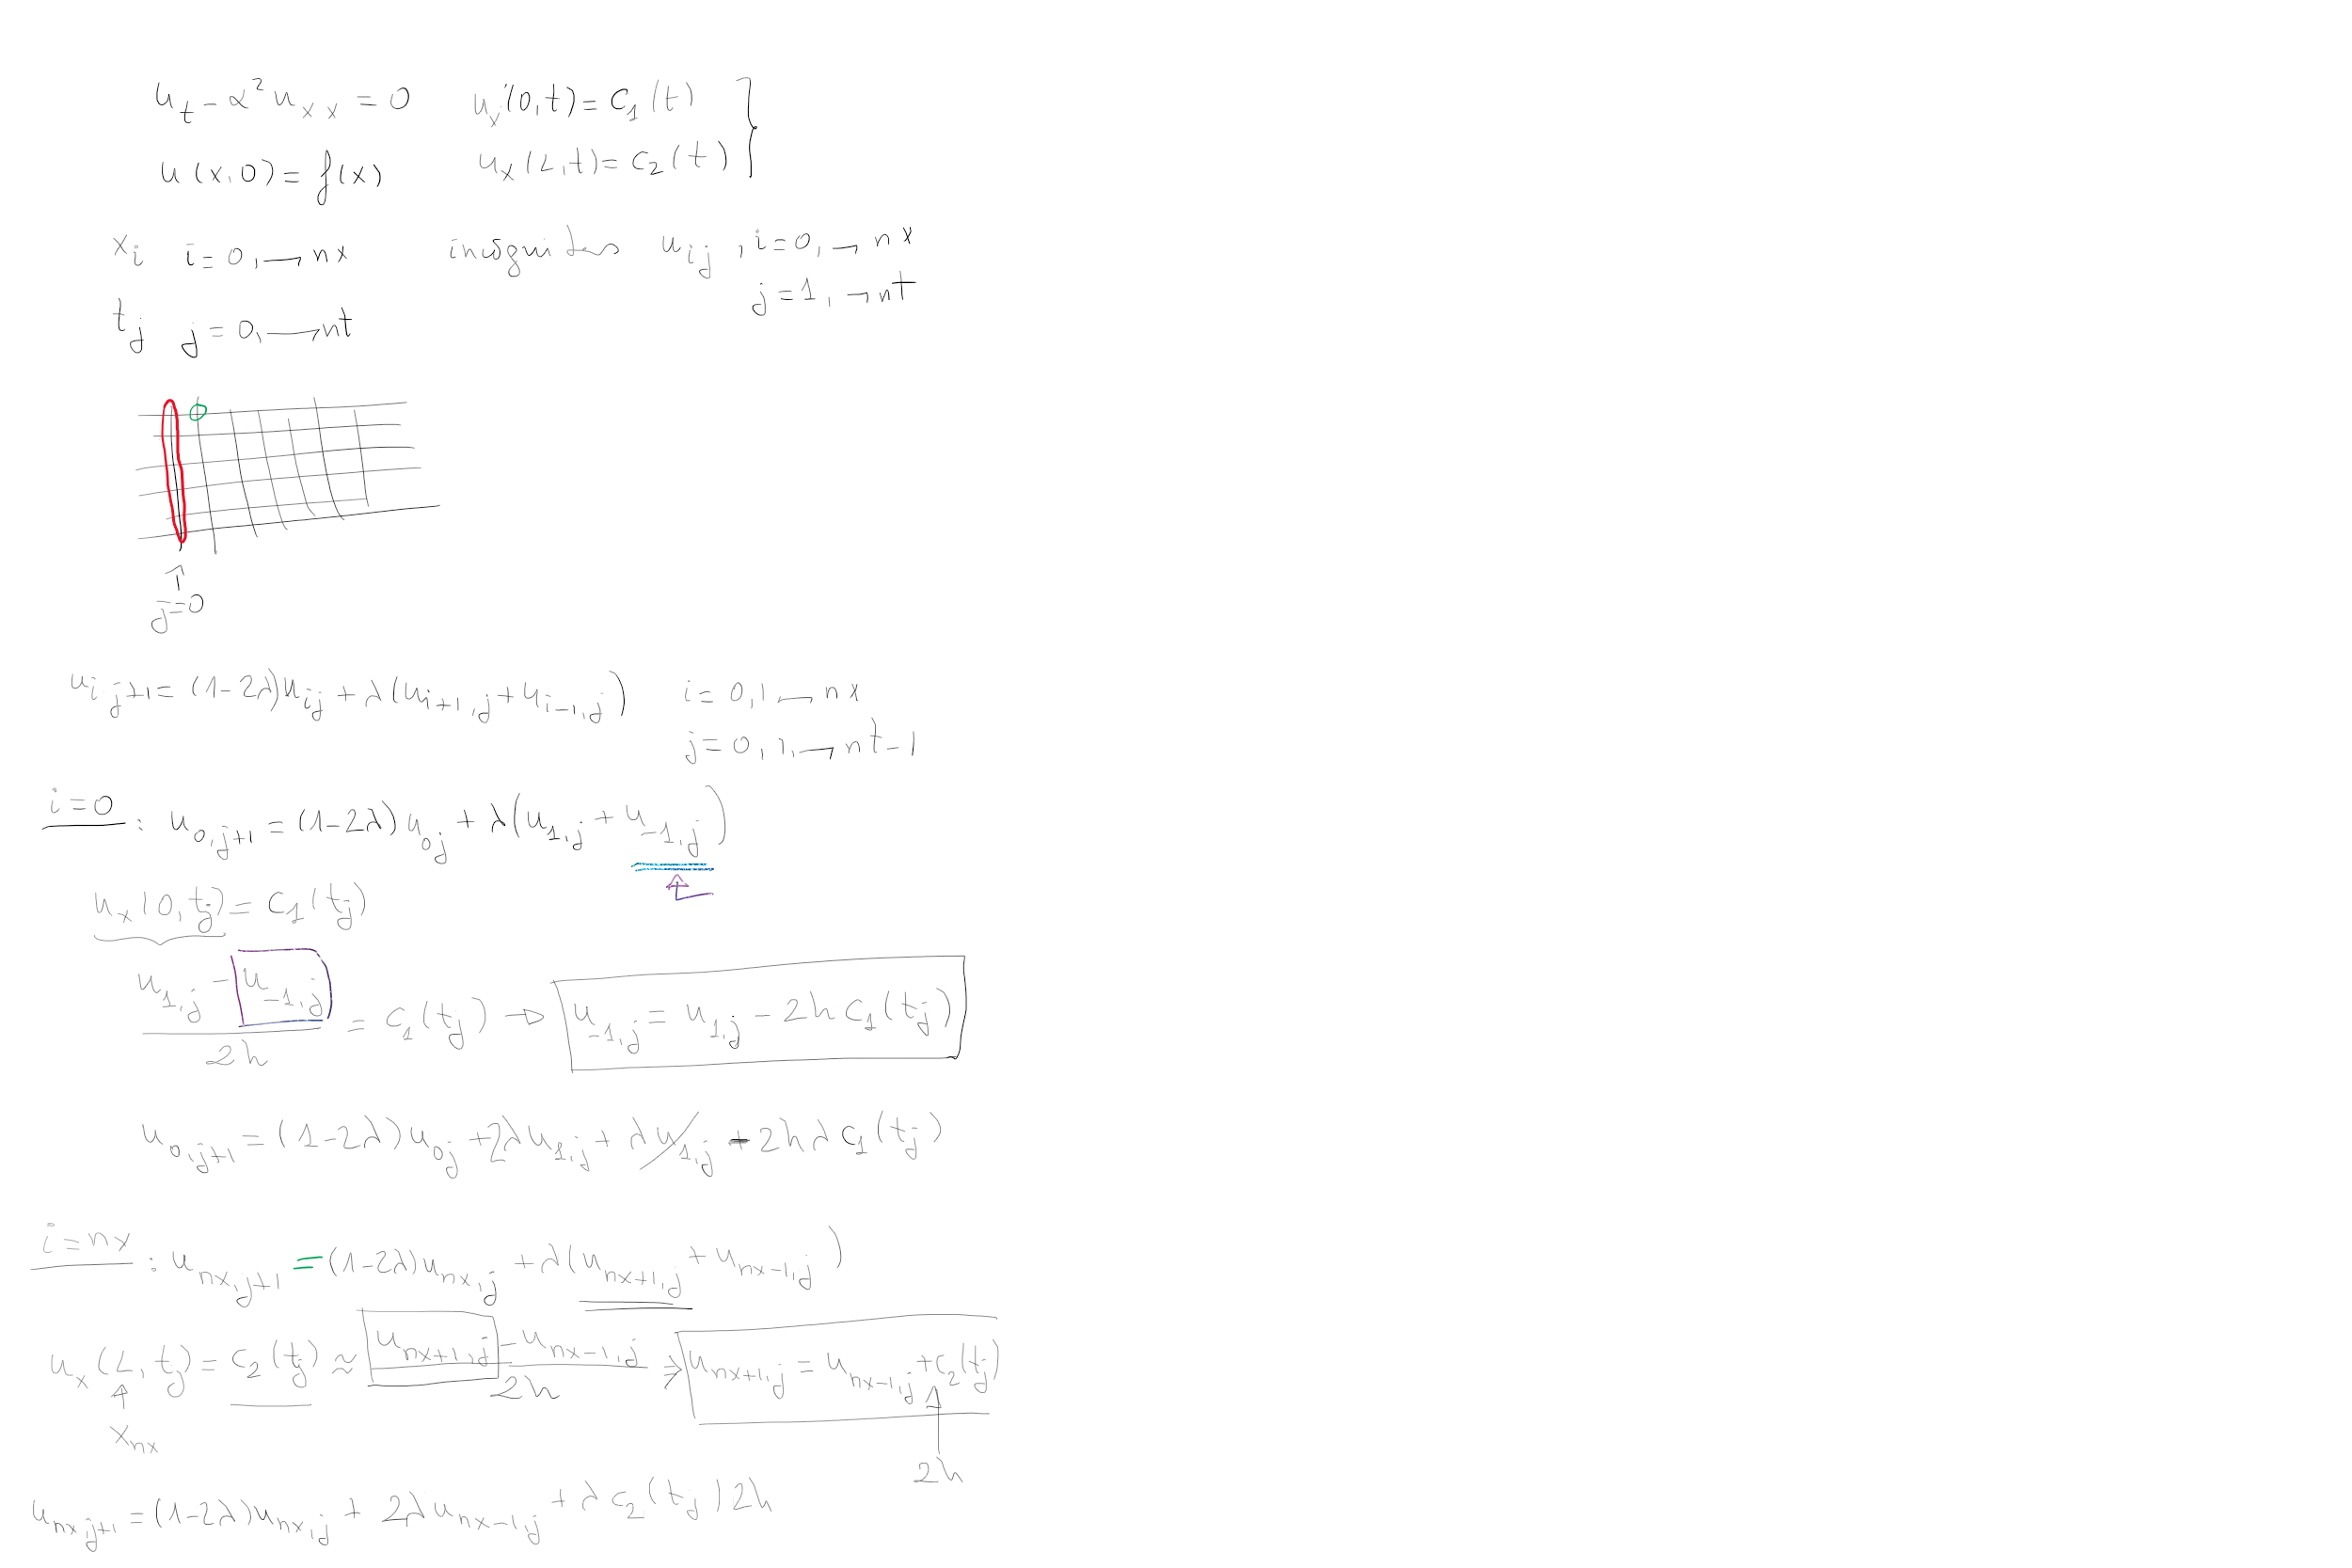 u_t - α² u_xx = 0    u_x(0,t) = c_1(t)
u(x,0) = f(x)    u_x(L,t) = c_2(t)
x_i  i = 0, → nx    incógnitas  u_ij , i = 0, → nx
j = 1, → nt
t_j  j = 0, → nt
↑
j = 0
u_{i j+1} = (1-2λ)u_{ij} + λ(u_{i+1,j} + u_{i-1,j})    i = 0,1 → nx
j = 0,1, → nt-1
i = 0 : u_{0,j+1} = (1-2λ)u_{0j} + λ(u_{1,j} + u_{-1,j})
u_x(0,t_j) = c_1(t_j)
(u_{1,j} - u_{-1,j}) / 2h = c_1(t_j) → u_{-1,j} = u_{1,j} - 2h c_1(t_j)
u_{0,j+1} = (1-2λ)u_{0j} + 2λ u_{1,j} + λ u_{1,j} - 2hλ c_1(t_j)
i = nx : u_{nx,j+1} = (1-2λ)u_{nx,j} + λ(u_{nx+1,j} + u_{nx-1,j})
u_x(L,t_j) = c_2(t_j) ≈ (u_{nx+1,j} - u_{nx-1,j}) / 2h ⇒ u_{nx+1,j} = u_{nx-1,j} + c_2(t_j)
↑
x_nx
2h
u_{nx,j+1} = (1-2λ)u_{nx,j} + 2λ u_{nx-1,j} + λ c_2(t_j) 2h